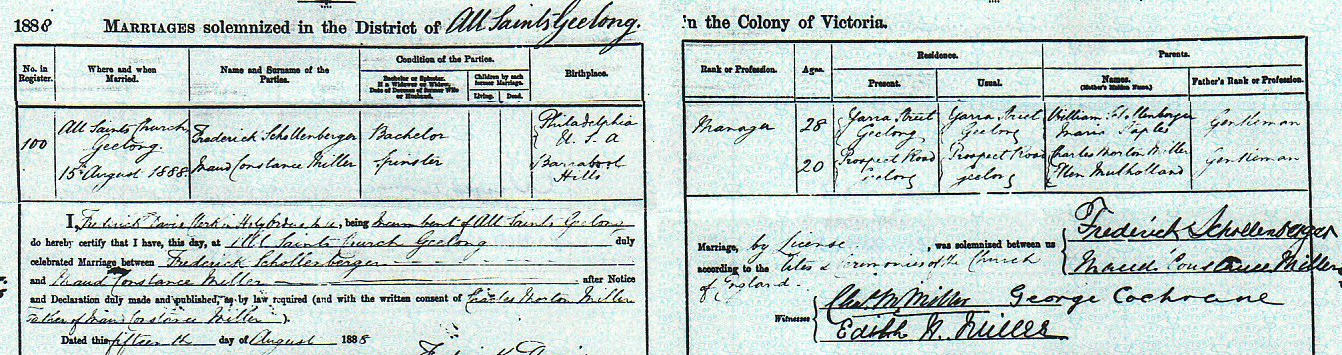 1888 MARRIAGES solemnized in the District of All Saints Geelong.
in the Colony of Victoria.
No. in Register.
Where and when Married.
Name and Surname of the Parties.
Condition of the Parties.
Bachelor or Spinster. If a Widower or Widow, Date of Decease of former Wife or Husband.
Children by each former Marriage.
Living. Dead.
Birthplace.
Rank or Profession.
Ages.
Residence.
Present. Usual.
Parents.
Names. (Mother's Maiden Name.)
Father's Rank or Profession.
100
All Saints Church
Geelong.
15th August 1888
Frederick Schollenberger
Maud Constance Miller
Bachelor
Spinster
Philadelphia
U. S. A
Barrabool
Hills
Manager
28
20
Yarra Street
Geelong
Prospect Road
Geelong
Yarra Street
Geelong
Prospect Road
Geelong
William Schollenberger
Maria
Charles Morton Miller
Ellen Mulholland
Gentleman
Gentleman
I, Frederick Davis Clerk in Holy Orders, being Incumbent of All Saints Geelong
do hereby certify that I have, this day, at All Saints Church Geelong duly
celebrated Marriage between Frederick Schollenberger
and Maud Constance Miller after Notice
and Declaration duly made and published, as by law required (and with the written consent of Charles Morton Miller
Father of Maud Constance Miller).
Dated this fifteenth day of August 1888
Marriage, by License, was solemnized between us
according to the Rites & Ceremonies of the Church
of England.
Frederick Schollenberger
Maud Constance Miller
Witnesses
Chas. M. Miller George Cochrane
Edith N. Miller